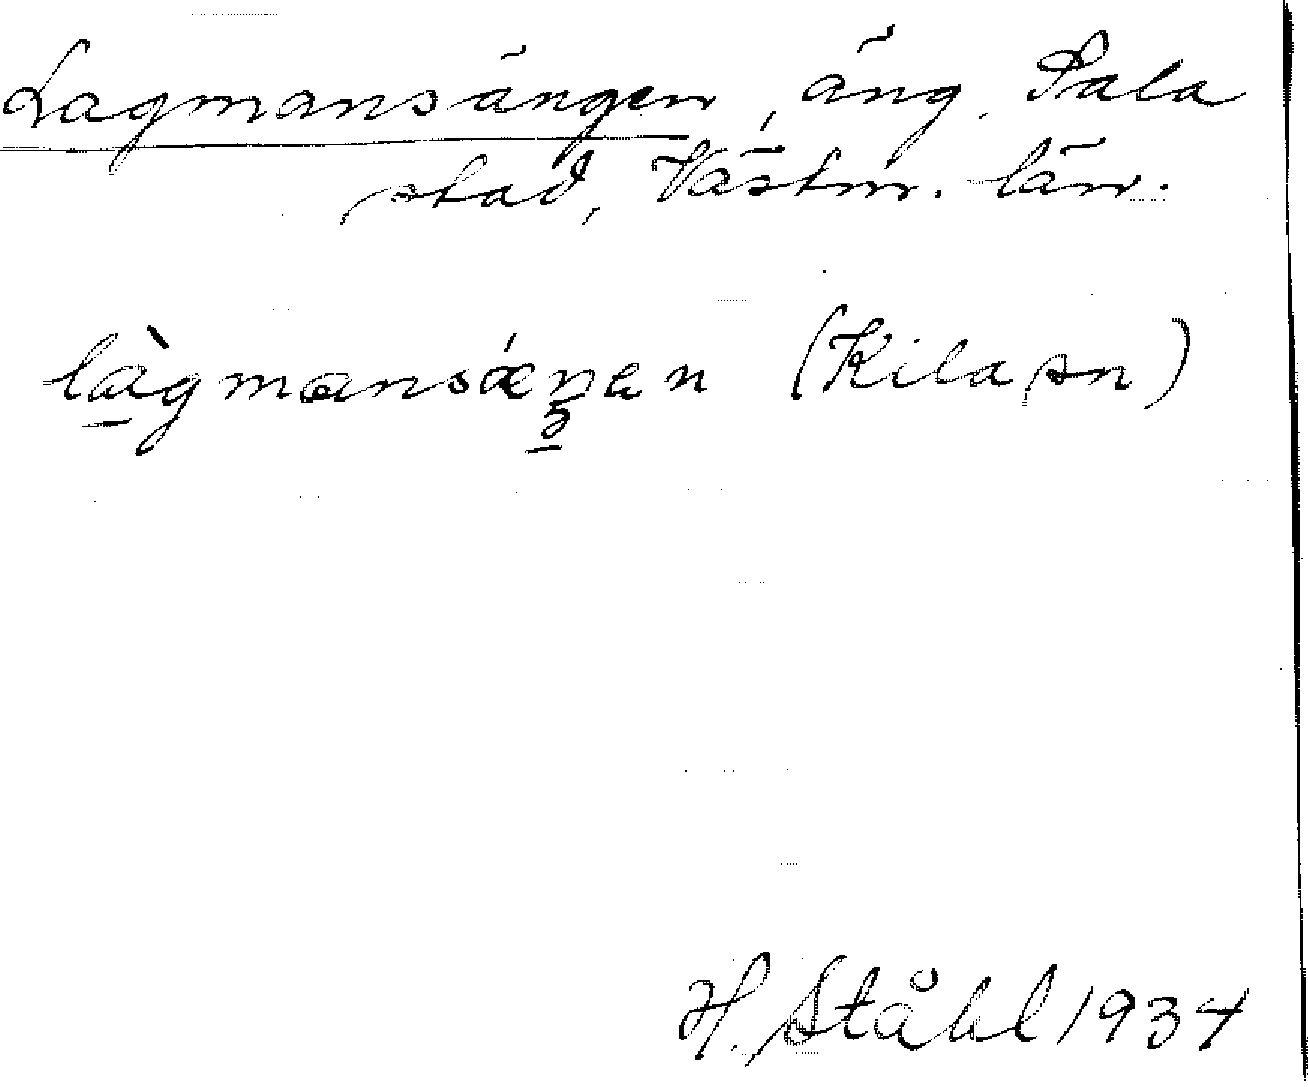 Lagmansängen, äng, Sala
stad, Västm. län.
làgmansǽŋen (Kila sn)
H. Ståhl 1934